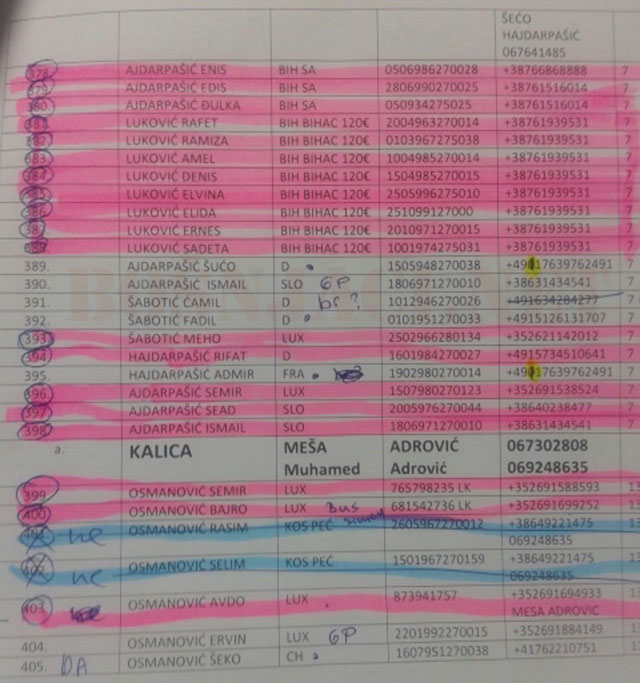 ŠEĆO
HAJDARPAŠIĆ
067641485
378 AJDARPAŠIĆ ENIS BIH SA 0506986270028 +38766868888 7
379 AJDARPAŠIĆ EDIS BIH SA 2806990270025 +38761516014 7
380 AJDARPAŠIĆ ĐULKA BIH SA 050934275025 +38761516014 7
LUKOVIĆ RAFET BIH BIHAC 120€ 2004963270014 +38761939531 7
382 LUKOVIĆ RAMIZA BIH BIHAC 120€ 0103967275038 +38761939531 7
383 LUKOVIĆ AMEL BIH BIHAC 120€ 1004985270014 +38761939531 7
384 LUKOVIĆ DENIS BIH BIHAC 120€ 1504985270015 +38761939531 7
LUKOVIĆ ELVINA BIH BIHAC 120€ 2505996275010 +38761939531 7
386 LUKOVIĆ ELIDA BIH BIHAC 120€ 251099127000 +38761939531 7
LUKOVIĆ ERNES BIH BIHAC 120€ 2010971270015 +38761939531 7
LUKOVIĆ SADETA BIH BIHAC 120€ 1001974275031 +38761939531 7
389. AJDARPAŠIĆ ŠUĆO D 1505948270038 +49017639762491 7
390. AJDARPAŠIĆ ISMAIL SLO GP 1806971270010 +38631434541 7
391. ŠABOTIĆ ĆAMIL D br ? 1012946270026 +491634284277 7
392. ŠABOTIĆ FADIL D 0101951270033 +4915126131707 7
393 ŠABOTIĆ MEHO LUX 2502966280134 +352621142012 7
394 HAJDARPAŠIĆ RIFAT D 1601984270027 +4915734510641 7
395. HAJDARPAŠIĆ ADMIR FRA 1902980270014 +49017639762491 7
396 AJDARPAŠIĆ SEMIR LUX 1507980270123 +352691538524 7
397 AJDARPAŠIĆ SEAD SLO 2005976270044 +38640238477 7
398 AJDARPAŠIĆ ISMAIL SLO 1806971270010 +38631434541 7
a. KALICA MEŠA ADROVIĆ 067302808
Muhamed Adrović 069248635
399 OSMANOVIĆ SEMIR LUX 765798235 LK +352691588593 13
400 OSMANOVIĆ BAJRO LUX Bus 681542736 LK +352691699252 13
ne OSMANOVIĆ RASIM KOS PEĆ 2605967270012 +38649221475 13
069248635
ne OSMANOVIĆ SELIM KOS PEĆ 1501967270159 +38649221475 13
069248635
403 OSMANOVIĆ AVDO LUX 873941757 +352691694933 13
MESA ADROVIC
404. OSMANOVIĆ ERVIN LUX GP 2201992270015 +352691884149 13
405. DA OSMANOVIĆ ŠEKO CH 1607951270038 +41762210751 1